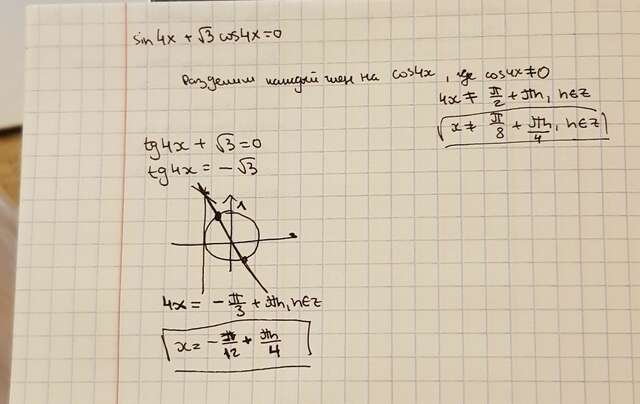 sin4x + √3 cos4x=0
Разделим каждый член на cos4x, где cos4x≠0
4x ≠ π/2 + πn, n∈z
x ≠ π/8 + πn/4, n∈z
tg4x + √3=0
tg4x = -√3
4x = -π/3 + πn, n∈z
x = -π/12 + πn/4